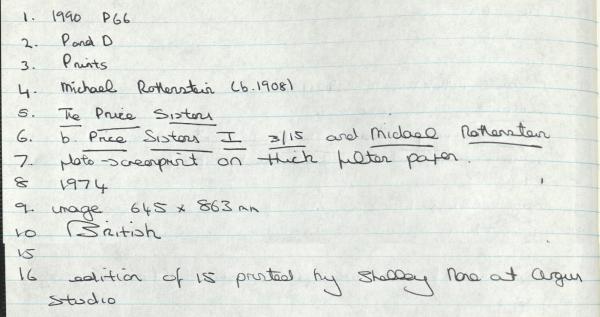 1. 1990 P66
2. P and D
3. Prints
4. Michael Rothenstein (b.1908)
5. The Price Sisters
6. b. Price Sisters I 3/15 and Michael Rothenstein
7. photo-screenprint on thick filter paper.
8 1974
9. image 645 x 863 mm
10 British
15
16 edition of 15 printed by Shelley Rose at Argus
Studio